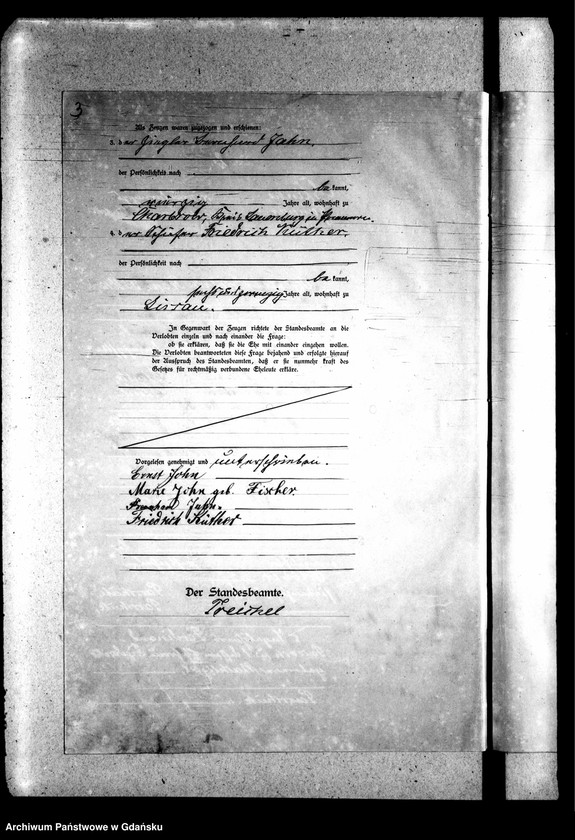 3
Als Zeugen waren zugezogen und erschienen:
3. der Ziegler Bernhard Jahn,
der Persönlichkeit nach
be kannt,
vierzig Jahre alt, wohnhaft zu
Kreis Lauenburg in Pommern.
4. der Schäfer Friedrich Küther,
der Persönlichkeit nach
be kannt,
sechsundzwanzig Jahre alt, wohnhaft zu
In Gegenwart der Zeugen richtete der Standesbeamte an die
Verlobten einzeln und nach einander die Frage:
ob sie erklären, daß sie die Ehe mit einander eingehen wollen.
Die Verlobten beantworteten diese Frage bejahend und erfolgte hierauf
der Ausspruch des Standesbeamten, daß er sie nunmehr kraft des
Gesetzes für rechtmäßig verbundene Eheleute erkläre.
Vorgelesen genehmigt und unterschrieben.
Ernst John
Marie John geb. Fischer
Bernhard Jahn.
Friedrich Küther
Der Standesbeamte.
Treichel
Archiwum Państwowe w Gdańsku